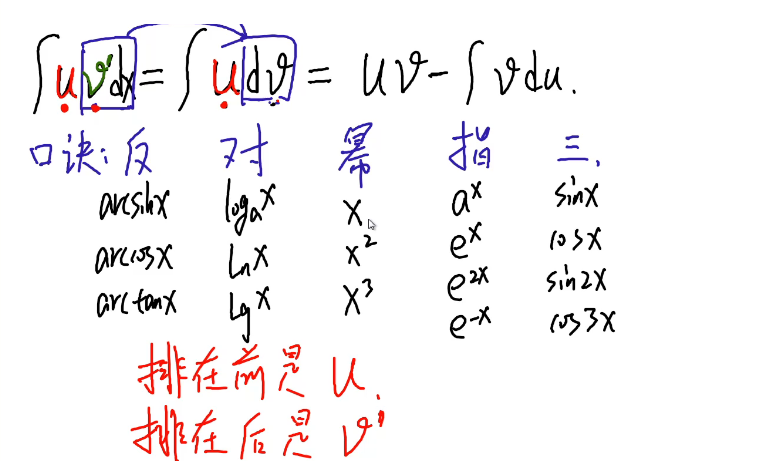 ∫uv'dx = ∫udv = uv - ∫vdu.
口诀: 反 对 幂 指 三.
arcsinx log_a x x a^x sinx
arccosx Lnx x² e^x cosx
arctanx Lgx x³ e^2x sin2x
e^-x cos3x
排在前是 u.
排在后是 v'